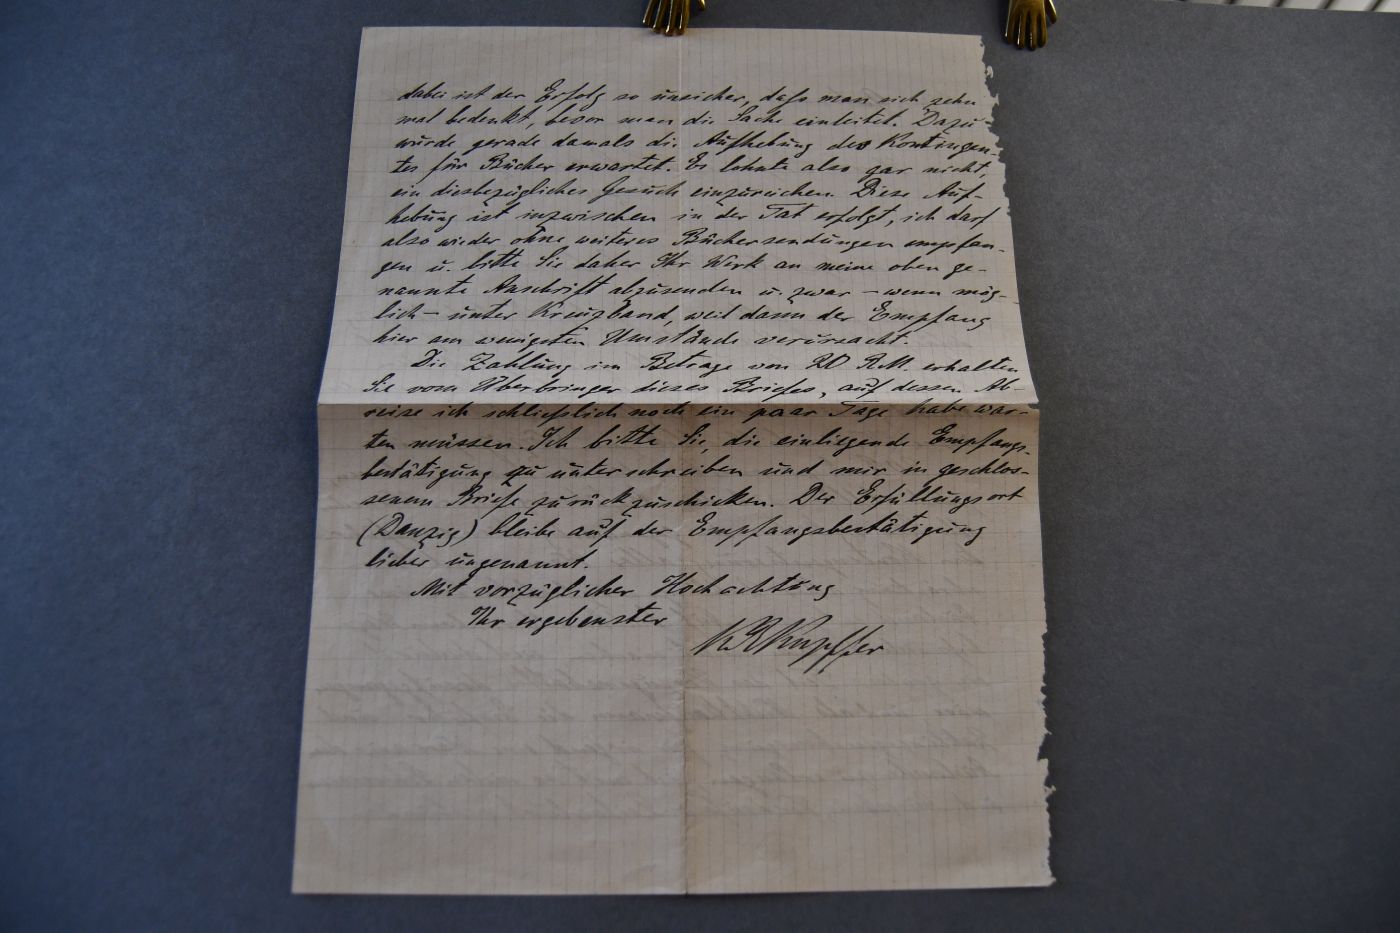 dabei ist der Erfolg so unsicher, dass man sich zehn
mal bedenkt, bevor man die Sache einleitet. Dazu
wurde gerade damals die Aufhebung des Kontingen-
tes für Bücher erwartet. Es lohnte also gar nicht,
ein diesbezügliches Gesuch einzureichen. Diese Auf-
hebung ist inzwischen in der Tat erfolgt, ich darf
also wieder ohne weiteres Büchersendungen empfan-
gen u. bitte Sie daher Ihr Werk an meine oben ge-
nannte Anschrift abzusenden u. zwar – wenn mög-
lich – unter Kreuzband, weil dann der Empfang
hier am wenigsten Umstände verursacht.
Die Zahlung im Betrage von 20 R.M. erhalten
Sie vom Überbringer dieses Briefes, auf dessen Ab-
reise ich schliesslich noch ein paar Tage habe war-
ten müssen. Ich bitte Sie, die einliegende Empfangs-
bestätigung zu unterschreiben und mir in geschlos-
senem Briefe zurückzuschicken. Der Erfüllungsort
(Danzig) bleibe auf der Empfangsbestätigung
lieber ungenannt.
Mit vorzüglicher Hochachtung
Ihr ergebenster
KRKupffer